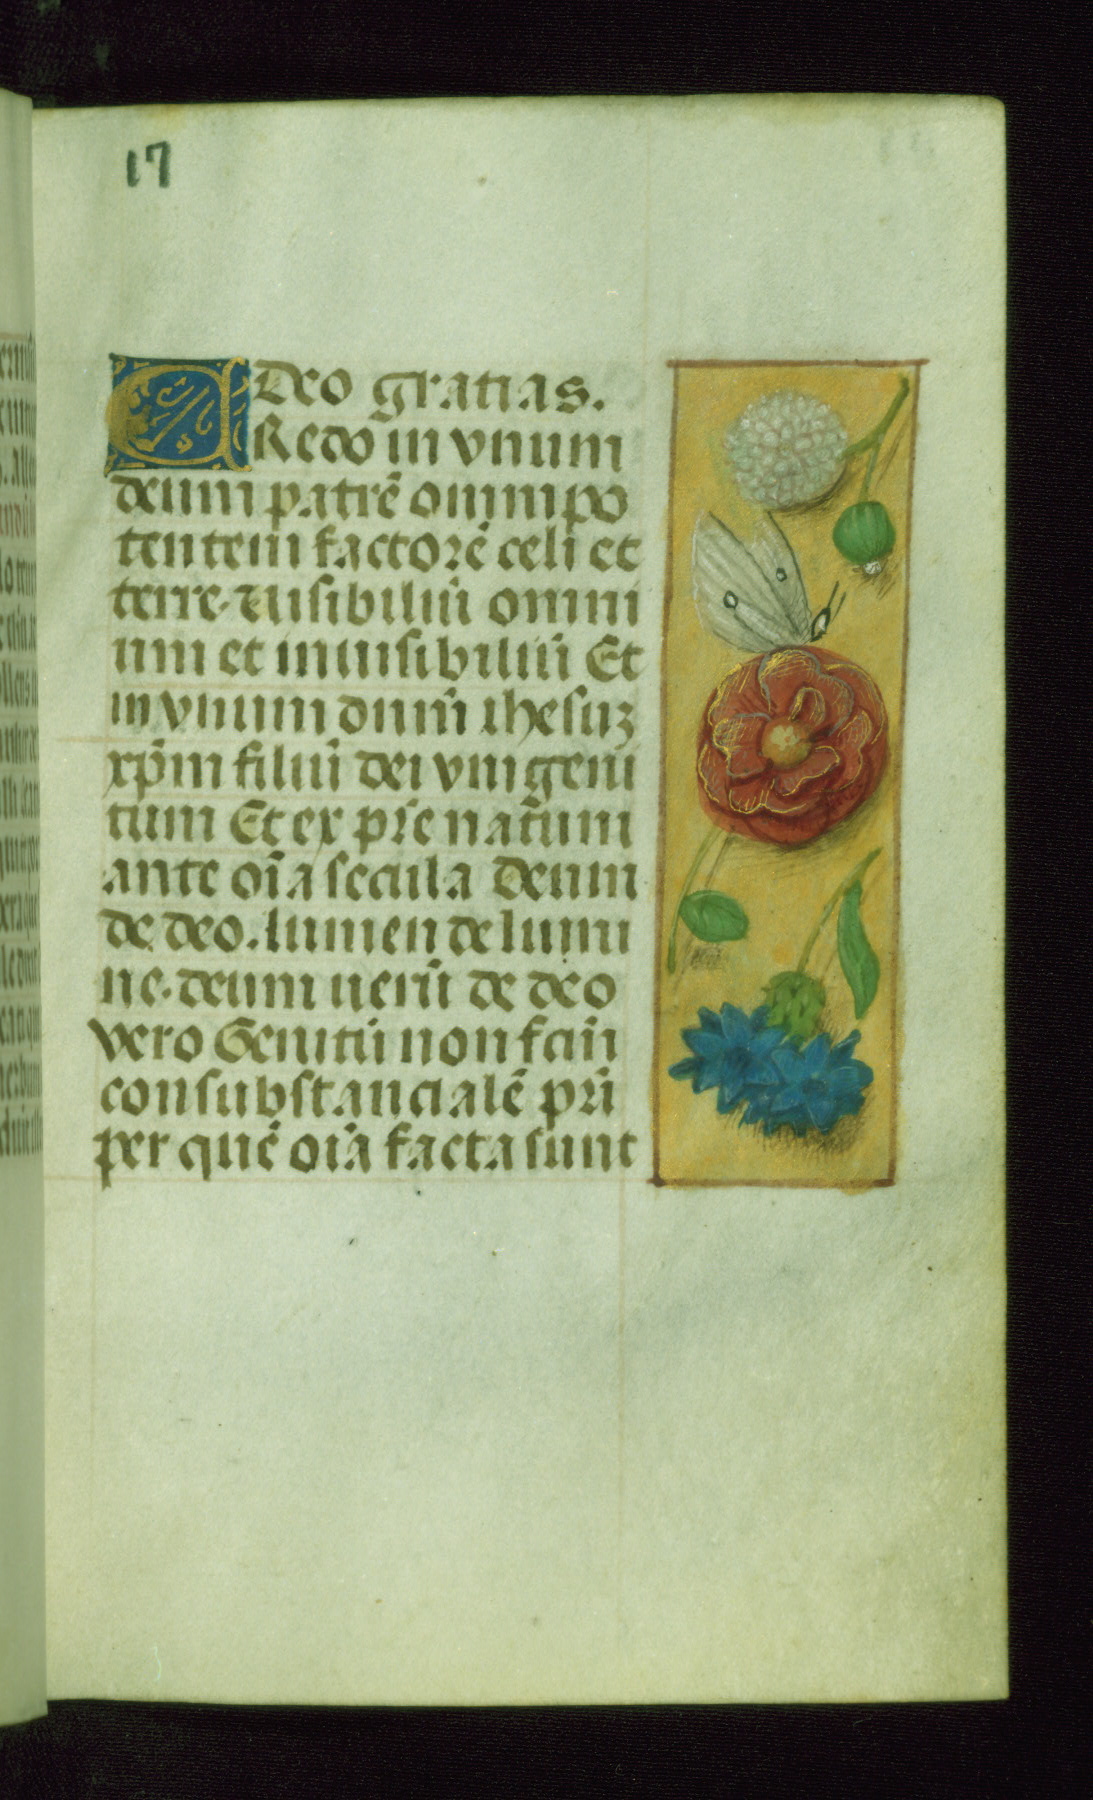 17
Deo gratias.
CRedo in vnum
deum patrē omnipo
tentem factorē celi et
terre. Uisibiliū omni
um et inuisibiliū Et
in vnum dnm̄ ihesuz
xp̄m filiū dei vnigeni
tum Et ex pr̄e natum
ante oīa secula Deum
de deo. lumen de lumi
ne. deum uerū de deo
vero Genitū non fcm̄
consubstancialē pr̄i
per quē oīa facta sunt